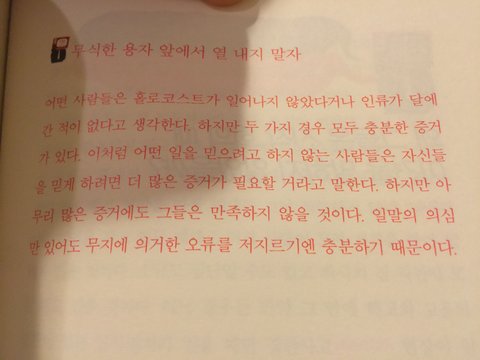 무식한 용자 앞에서 열 내지 말자
어떤 사람들은 홀로코스트가 일어나지 않았다거나 인류가 달에
간 적이 없다고 생각한다. 하지만 두 가지 경우 모두 충분한 증거
가 있다. 이처럼 어떤 일을 믿으려고 하지 않는 사람들은 자신들
을 믿게 하려면 더 많은 증거가 필요할 거라고 말한다. 하지만 아
무리 많은 증거에도 그들은 만족하지 않을 것이다. 일말의 의심
만 있어도 무지에 의거한 오류를 저지르기엔 충분하기 때문이다.